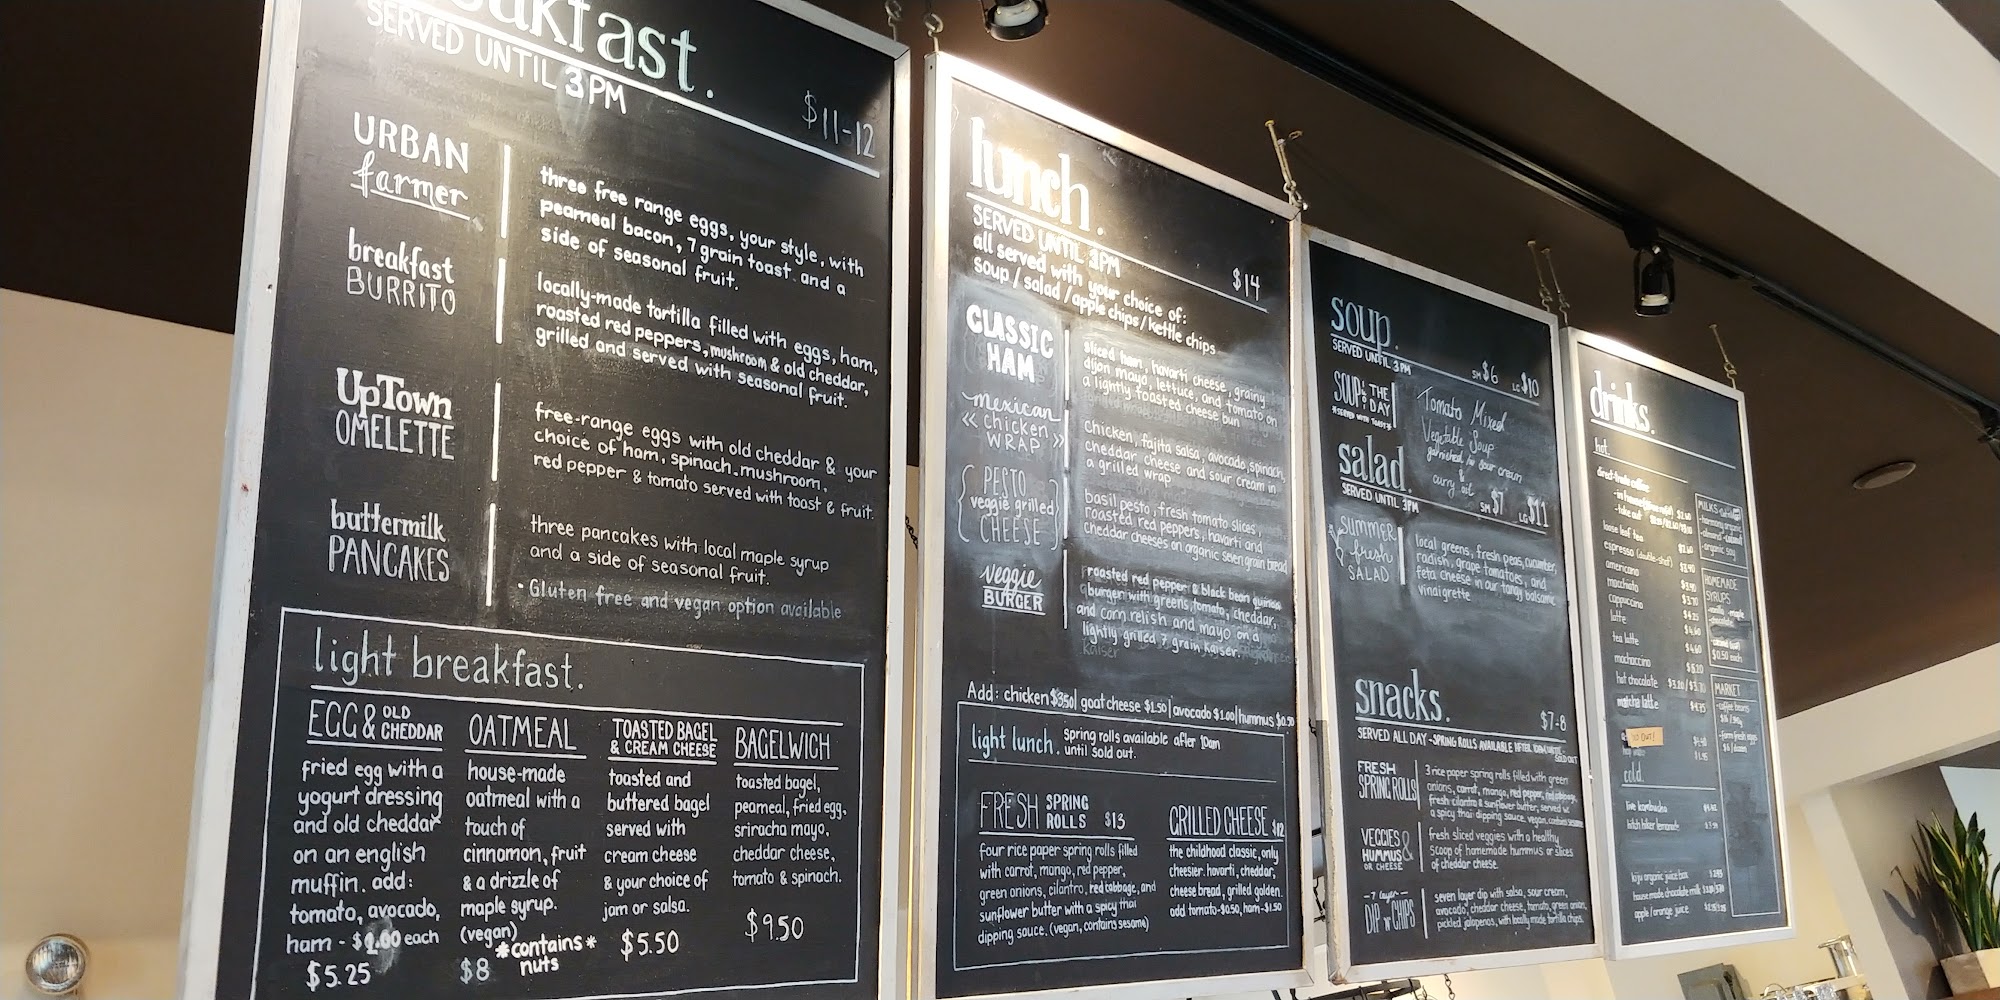 breakfast.
SERVED UNTIL 3PM
$11-12
URBAN
farmer
three free range eggs, your style, with
peameal bacon, 7 grain toast and a
side of seasonal fruit.
breakfast
BURRITO
locally-made tortilla filled with eggs, ham,
roasted red peppers, mushroom & old cheddar,
grilled and served with seasonal fruit.
UpTown
OMELETTE
free-range eggs with old cheddar & your
choice of ham, spinach, mushroom,
red pepper & tomato served with toast & fruit.
buttermilk
PANCAKES
three pancakes with local maple syrup
and a side of seasonal fruit.
• Gluten free and vegan option available
light breakfast.
EGG & OLD CHEDDAR
fried egg with a
yogurt dressing
and old cheddar
on an english
muffin. add:
tomato, avocado,
ham - $1.00 each
$5.25
OATMEAL
house-made
oatmeal with a
touch of
cinnamon, fruit
& a drizzle of
maple syrup.
(vegan)
*contains*
nuts
$8
TOASTED BAGEL
& CREAM CHEESE
toasted and
buttered bagel
served with
cream cheese
& your choice of
jam or salsa.
$5.50
BAGELWICH
toasted bagel,
peameal, fried egg,
sriracha mayo,
cheddar cheese,
tomato & spinach.
$9.50
lunch.
SERVED UNTIL 3PM
all served with your choice of:
soup / salad / apple chips / kettle chips
$14
CLASSIC
HAM
sliced ham, havarti cheese, grainy
dijon mayo, lettuce, and tomato on
a lightly toasted cheese bun
mexican
« chicken »
WRAP
Chicken, fajita salsa, avocado, spinach,
cheddar cheese and sour cream in
a grilled wrap
PESTO
veggie grilled
CHEESE
basil pesto, fresh tomato slices,
roasted red peppers, havarti and
cheddar cheeses on organic seven grain bread
veggie
BURGER
roasted red pepper & black bean quinoa
burger with greens, tomato, cheddar,
and corn relish and mayo on a
lightly grilled 7 grain kaiser.
Add: chicken $3.50 | goat cheese $1.50 | avocado $1.00 | hummus $0.50
light lunch. spring rolls available after 10am
until sold out.
FRESH SPRING ROLLS $13
four rice paper spring rolls filled
with carrot, mango, red pepper,
green onions, cilantro, red cabbage, and
sunflower butter with a spicy thai
dipping sauce. (vegan, contains sesame)
GRILLED CHEESE $12
the childhood classic, only
cheesier. havarti, cheddar,
cheese bread, grilled golden.
add tomato-$0.50, ham-$1.50
soup.
SERVED UNTIL 3PM
SM $6 LG $10
SOUP OF THE DAY
*SERVED WITH TOAST*
Tomato Mixed
Vegetable Soup
garnished w sour cream
&
curry oil
salad.
SERVED UNTIL 3PM
SM $7 LG $11
SUMMER
fresh
SALAD
local greens, fresh peas, cucumber,
radish, grape tomatoes, and
feta cheese in our tangy balsamic
vinaigrette.
snacks.
$7-8
SERVED ALL DAY - SPRING ROLLS AVAILABLE AFTER 10AM UNTIL
SOLD OUT
FRESH
SPRING ROLLS
3 rice paper spring rolls filled with green
onions, carrot, mango, red pepper, red cabbage,
fresh cilantro & sunflower butter, served w/
a spicy thai dipping sauce. vegan, contains sesame
VEGGIES &
HUMMUS
OR CHEESE
fresh sliced veggies with a healthy
scoop of homemade hummus or slices
of cheddar cheese.
7 layer
DIP 'N' CHIPS
seven layer dip with salsa, sour cream,
avocado, cheddar cheese, tomato, green onion,
pickled jalapenos, with locally made tortilla chips.
drinks.
hot.
direct-trade coffee
- take out
loose leaf tea
espresso (double-shot)
americano
macchiato
cappuccino
latte
tea latte
mochaccino
hot chocolate
matcha latte
OUT!
cold.
live kombucha
kiju organic juice box
house made chocolate milk
apple/orange juice
MILKS
- harmony organic
- almond
- organic soy
HOMEMADE
SYRUPS
- vanilla - maple
- chocolate
$0.50 each
MARKET
- coffee beans
- farm fresh eggs
$6 / dozen